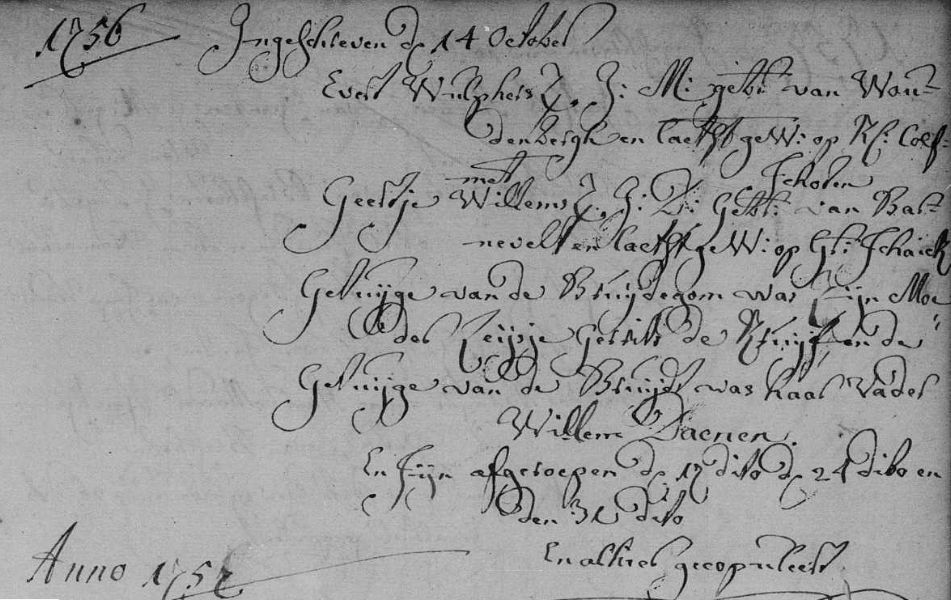 1756 Ingeschreven d. 14 October
Evert Wulpherz. J: M: gebt: van Wou-
denbergh en laetst geW: op Kl: Colf-
schoten
met
Geertje Willemsz. J: D: Gebt: van Bar-
nevelt en laetst geW: op Gt: Schaick
Getuijge van de Bruijdegom was Zijn Moe-
der Reijpje Gerrits de Kruijff en de
Getuijge van de Bruijdt was haar Vader
Willem Daenen.
En sijn afgeroepen d. 17 dito d. 24 dito en
den 31 dito
En alhier gecopuleert.
Anno 1757